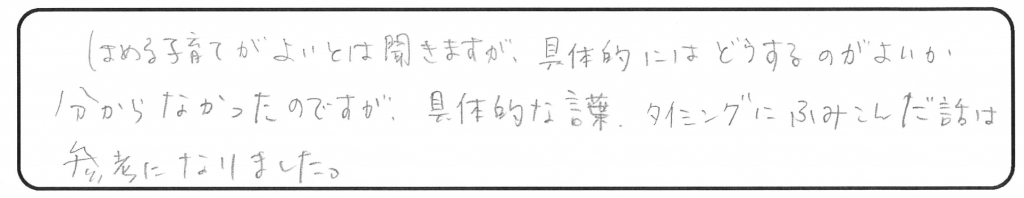 ほめる子育てがよいとは聞きますが、具体的にはどうするのがよいか
分からなかったのですが、具体的な言葉、タイミングにふみこんだ話は
参考になりました。